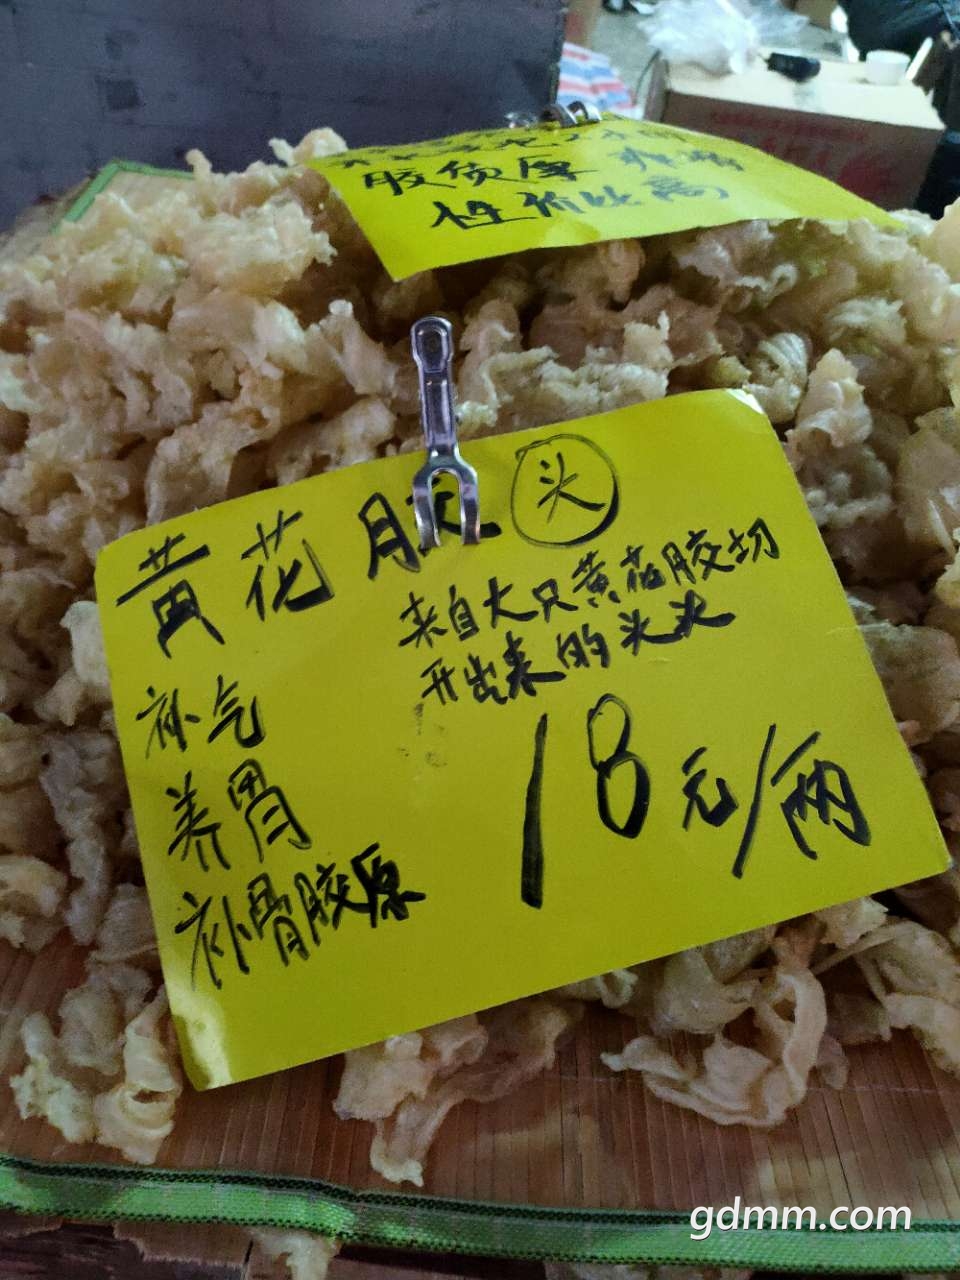 胶货厚
性价比高
黄花胶头
来自大只黄花胶切
开出来的头头
补气
养胃
补骨胶原
18元/两
gdmm.com